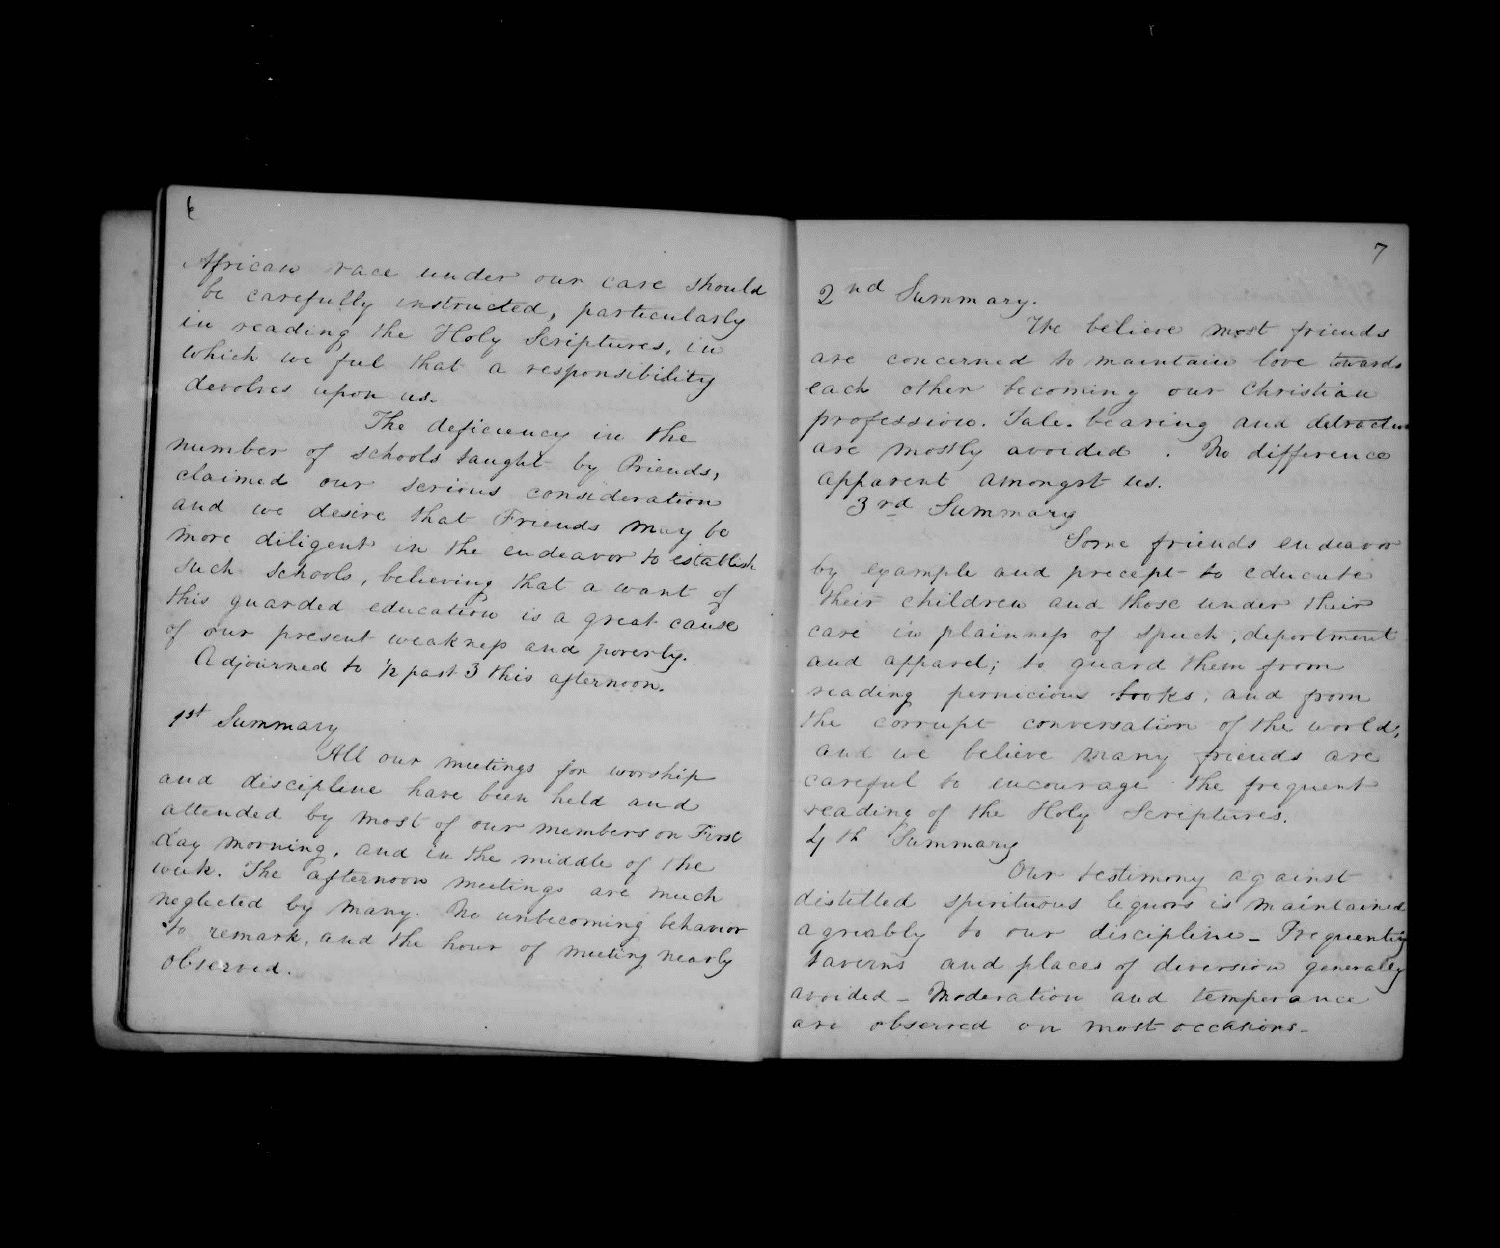 6
African race under our care should
be carefully instructed, particularly
in reading the Holy Scriptures, in
which we feel that a responsibility
devolves upon us.
The deficiency in the
number of schools taught by Friends,
claimed our serious consideration
and we desire that Friends may be
more diligent in the endeavor to establish
such schools, believing that a want of
this guarded education is a great cause
of our present weakness and poverty.
Adjourned to ½ past 3 this afternoon.
1st Summary
All our meetings for worship
and discipline have been held and
attended by most of our members on First
day morning, and in the middle of the
week. The afternoon meetings are much
neglected by many. No unbecoming behavior
to remark, and the hour of meeting nearly
observed.
7
2nd Summary.
We believe most friends
are concerned to maintain love towards
each other becoming our Christian
profession. Tale-bearing and detraction
are mostly avoided. No difference
apparent amongst us.
3rd Summary
Some friends endeavor
by example and precept to educate
their children and those under their
care in plainness of speech, deportment
and apparel; to guard them from
reading pernicious books, and from
the corrupt conversation of the world;
and we believe many friends are
careful to encourage the frequent
reading of the Holy Scriptures.
4th Summary
Our testimony against
distilled spirituous liquors is maintained
agreably to our discipline - Frequenting
taverns and places of diversion generally
avoided - Moderation and temperance
are observed on most occasions -